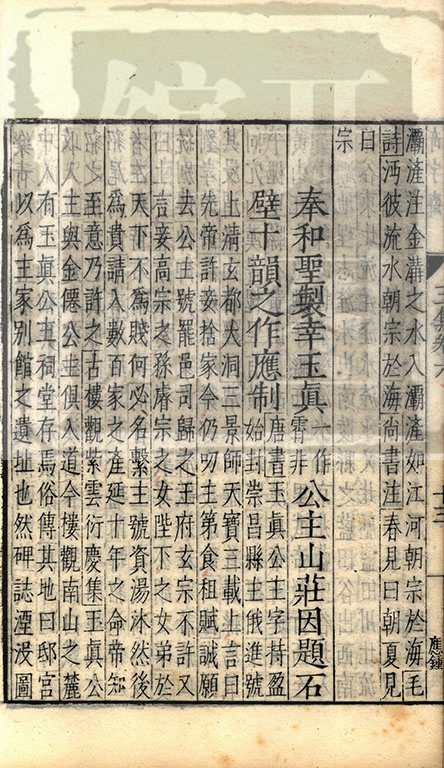 灞滻注金溝之水入灞滻如江河朝宗於海毛
詩沔彼流水朝宗於海尚書注春見曰朝夏見
曰
宗
奉和聖製幸玉真一作霄非公主山莊因題石
壁十韻之作應制唐書玉真公主字持盈始封崇昌縣主俄進號
上清玄都大洞三景師天寶三載上言曰
先帝許妾捨家今仍叨主第食租賦誠願
去公主號罷邑司歸之王府玄宗不許又
言妾高宗之孫睿宗之女陛下之女弟於
天下不為賤何必名繫主號資湯沐然後
為貴請入數百家之產延十年之命帝知
至意乃許之古樓觀紫雲衍慶集玉真公
主與金僊公主俱入道今樓觀南山之麓
有玉真公主祠堂存焉俗傳其地曰邸宮
以為主家別館之遺址也然碑誌湮沒圖
應鍾